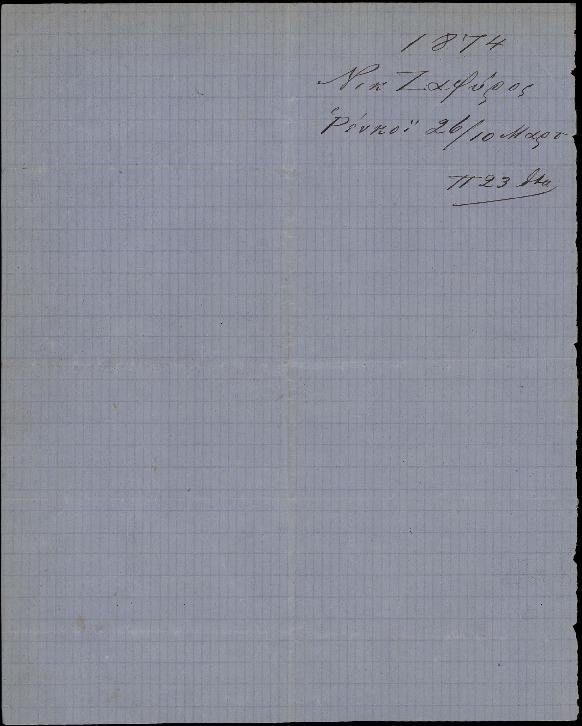 1874
Νικ Ζαφύρος
Ῥένκοϊ 26/10 Μαρτ
π 23 δτο